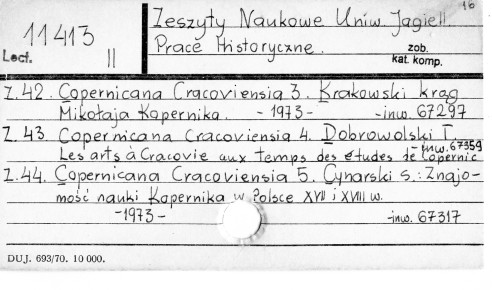 16
Zeszyty Naukowe Uniw. Jagiell.
11413 II
Lect.
Prace Historyczne.
zob. kat. komp.
Z.42. Copernicana Cracoviensia 3. Krakowski krąg
Mikołaja Kopernika. - 1973 - -inw. 67297
Z.43 Copernicana Cracoviensia 4. Dobrowolski T.
-inw. 67359
Les arts à Cracovie aux temps des études de Copernic
Z.44. Copernicana Cracoviensia 5. Cynarski S.: Znajo-
mość nauki Kopernika w Polsce XVII i XVIII w.
-1973- -inw. 67317
DUJ. 693/70. 10 000.